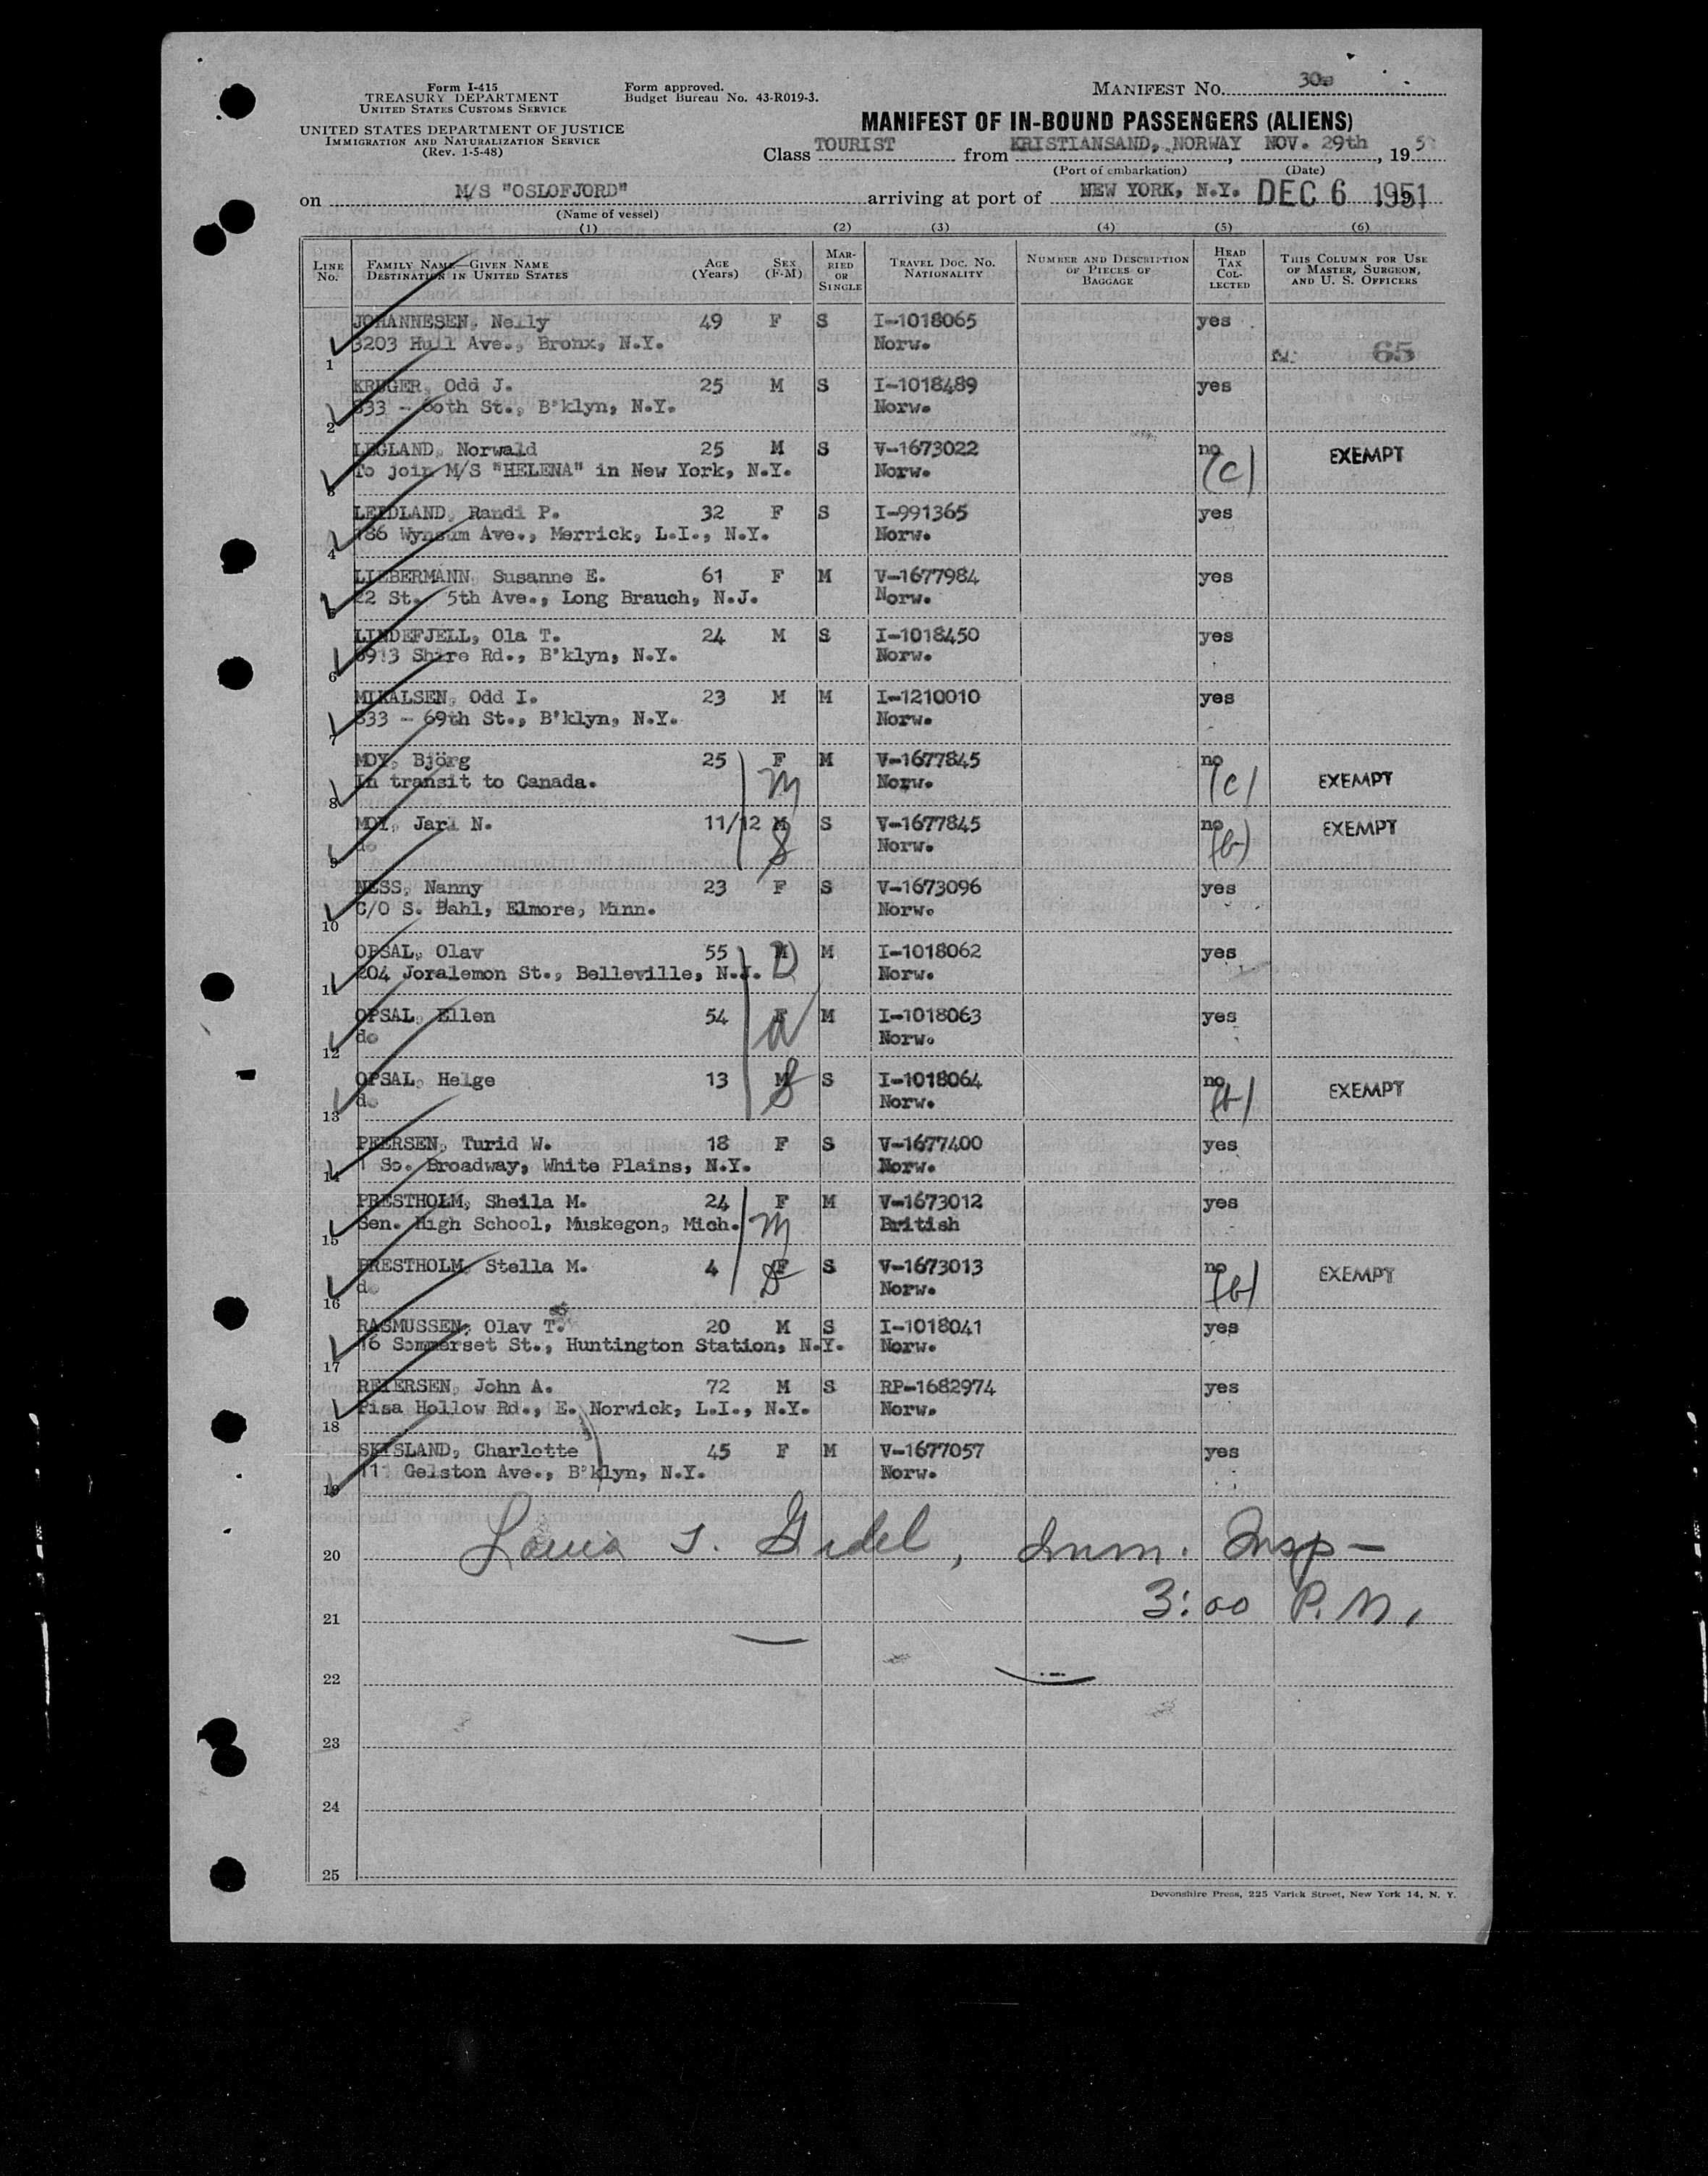 Form I-415
TREASURY DEPARTMENT
UNITED STATES CUSTOMS SERVICE
UNITED STATES DEPARTMENT OF JUSTICE
IMMIGRATION AND NATURALIZATION SERVICE
(Rev. 1-5-48)
Form approved.
Budget Bureau No. 43-R019-3.
MANIFEST NO.
MANIFEST OF IN-BOUND PASSENGERS (ALIENS)
Class TOURIST from KRISTIANSAND, NORWAY, NOV. 29th, 195
(Port of embarkation) (Date)
on M/S "OSLOFJORD" arriving at port of NEW YORK, N.Y. DEC 6 1951
(Name of vessel)
(1) (2) (3) (4) (5) (6)
LINE No. FAMILY NAME—GIVEN NAME DESTINATION IN UNITED STATES AGE (Years) SEX (F-M) MARRIED OR SINGLE TRAVEL DOC. NO. NATIONALITY NUMBER AND DESCRIPTION OF PIECES OF BAGGAGE HEAD TAX COLLECTED THIS COLUMN FOR USE OF MASTER, SURGEON, AND U. S. OFFICERS
JOHANNESEN, Nelly 49 F S I-1018065 yes
1 3203 Hull Ave., Bronx, N.Y. Norw. 65
KRUGER, Odd J. 25 M S I-1018489 yes
2 833 - 60th St., B'klyn, N.Y. Norw.
LEGLAND, Norwald 25 M S V-1673022 no EXEMPT
3 To join M/S "HELENA" in New York, N.Y. Norw. (c)
LEIDLAND, Randi P. 32 F S I-991365 yes
4 186 Wynsum Ave., Merrick, L.I., N.Y. Norw.
LIEBERMANN, Susanne E. 61 F M V-1677984 yes
5 22 St. 5th Ave., Long Brauch, N.J. Norw.
LINDEFJELL, Ola T. 24 M S I-1018450 yes
6 6913 Shire Rd., B'klyn, N.Y. Norw.
MIKALSEN, Odd I. 23 M M I-1210010 yes
7 833 - 69th St., B'klyn, N.Y. Norw.
MOY, Björg 25 F M V-1677845 no
8 In transit to Canada. M Norw. (c) EXEMPT
MOY, Jarl N. 11/12 M S V-1677845 no EXEMPT
9 do S Norw. (b)
NESS, Nanny 23 F S V-1673096 yes
10 C/O S. Dahl, Elmore, Minn. Norw.
OPSAL, Olav 55 M D M I-1018062 yes
11 204 Joralemon St., Belleville, N.J. Norw.
OPSAL, Ellen 54 F M I-1018063 yes
12 do Norw.
OPSAL, Helge 13 M S S I-1018064 no EXEMPT
13 do Norw. (b)
PEERSEN, Turid W. 18 F S V-1677400 yes
14 1 So. Broadway, White Plains, N.Y. Norw.
PRESTHOLM, Sheila M. 24 F M V-1673012 yes
15 Sen. High School, Muskegon, Mich. M British
PRESTHOLM, Stella M. 4 F S V-1673013 no EXEMPT
16 do Norw. (b)
RASMUSSEN, Olav T. 20 M S I-1018041 yes
17 16 Sommerset St., Huntington Station, N.Y. Norw.
REIERSEN, John A. 72 M S RP-1682974 yes
18 Pisa Hollow Rd., E. Norwick, L.I., N.Y. Norw.
SKEISLAND, Charlotte 45 F M V-1677057 yes
19 111 Gelston Ave., B'klyn, N.Y. Norw.
20 Louis J. Imm. Insp—
21 3:00 P.M.
22
23
24
25
Devonshire Press, 225 Varick Street, New York 14, N. Y.